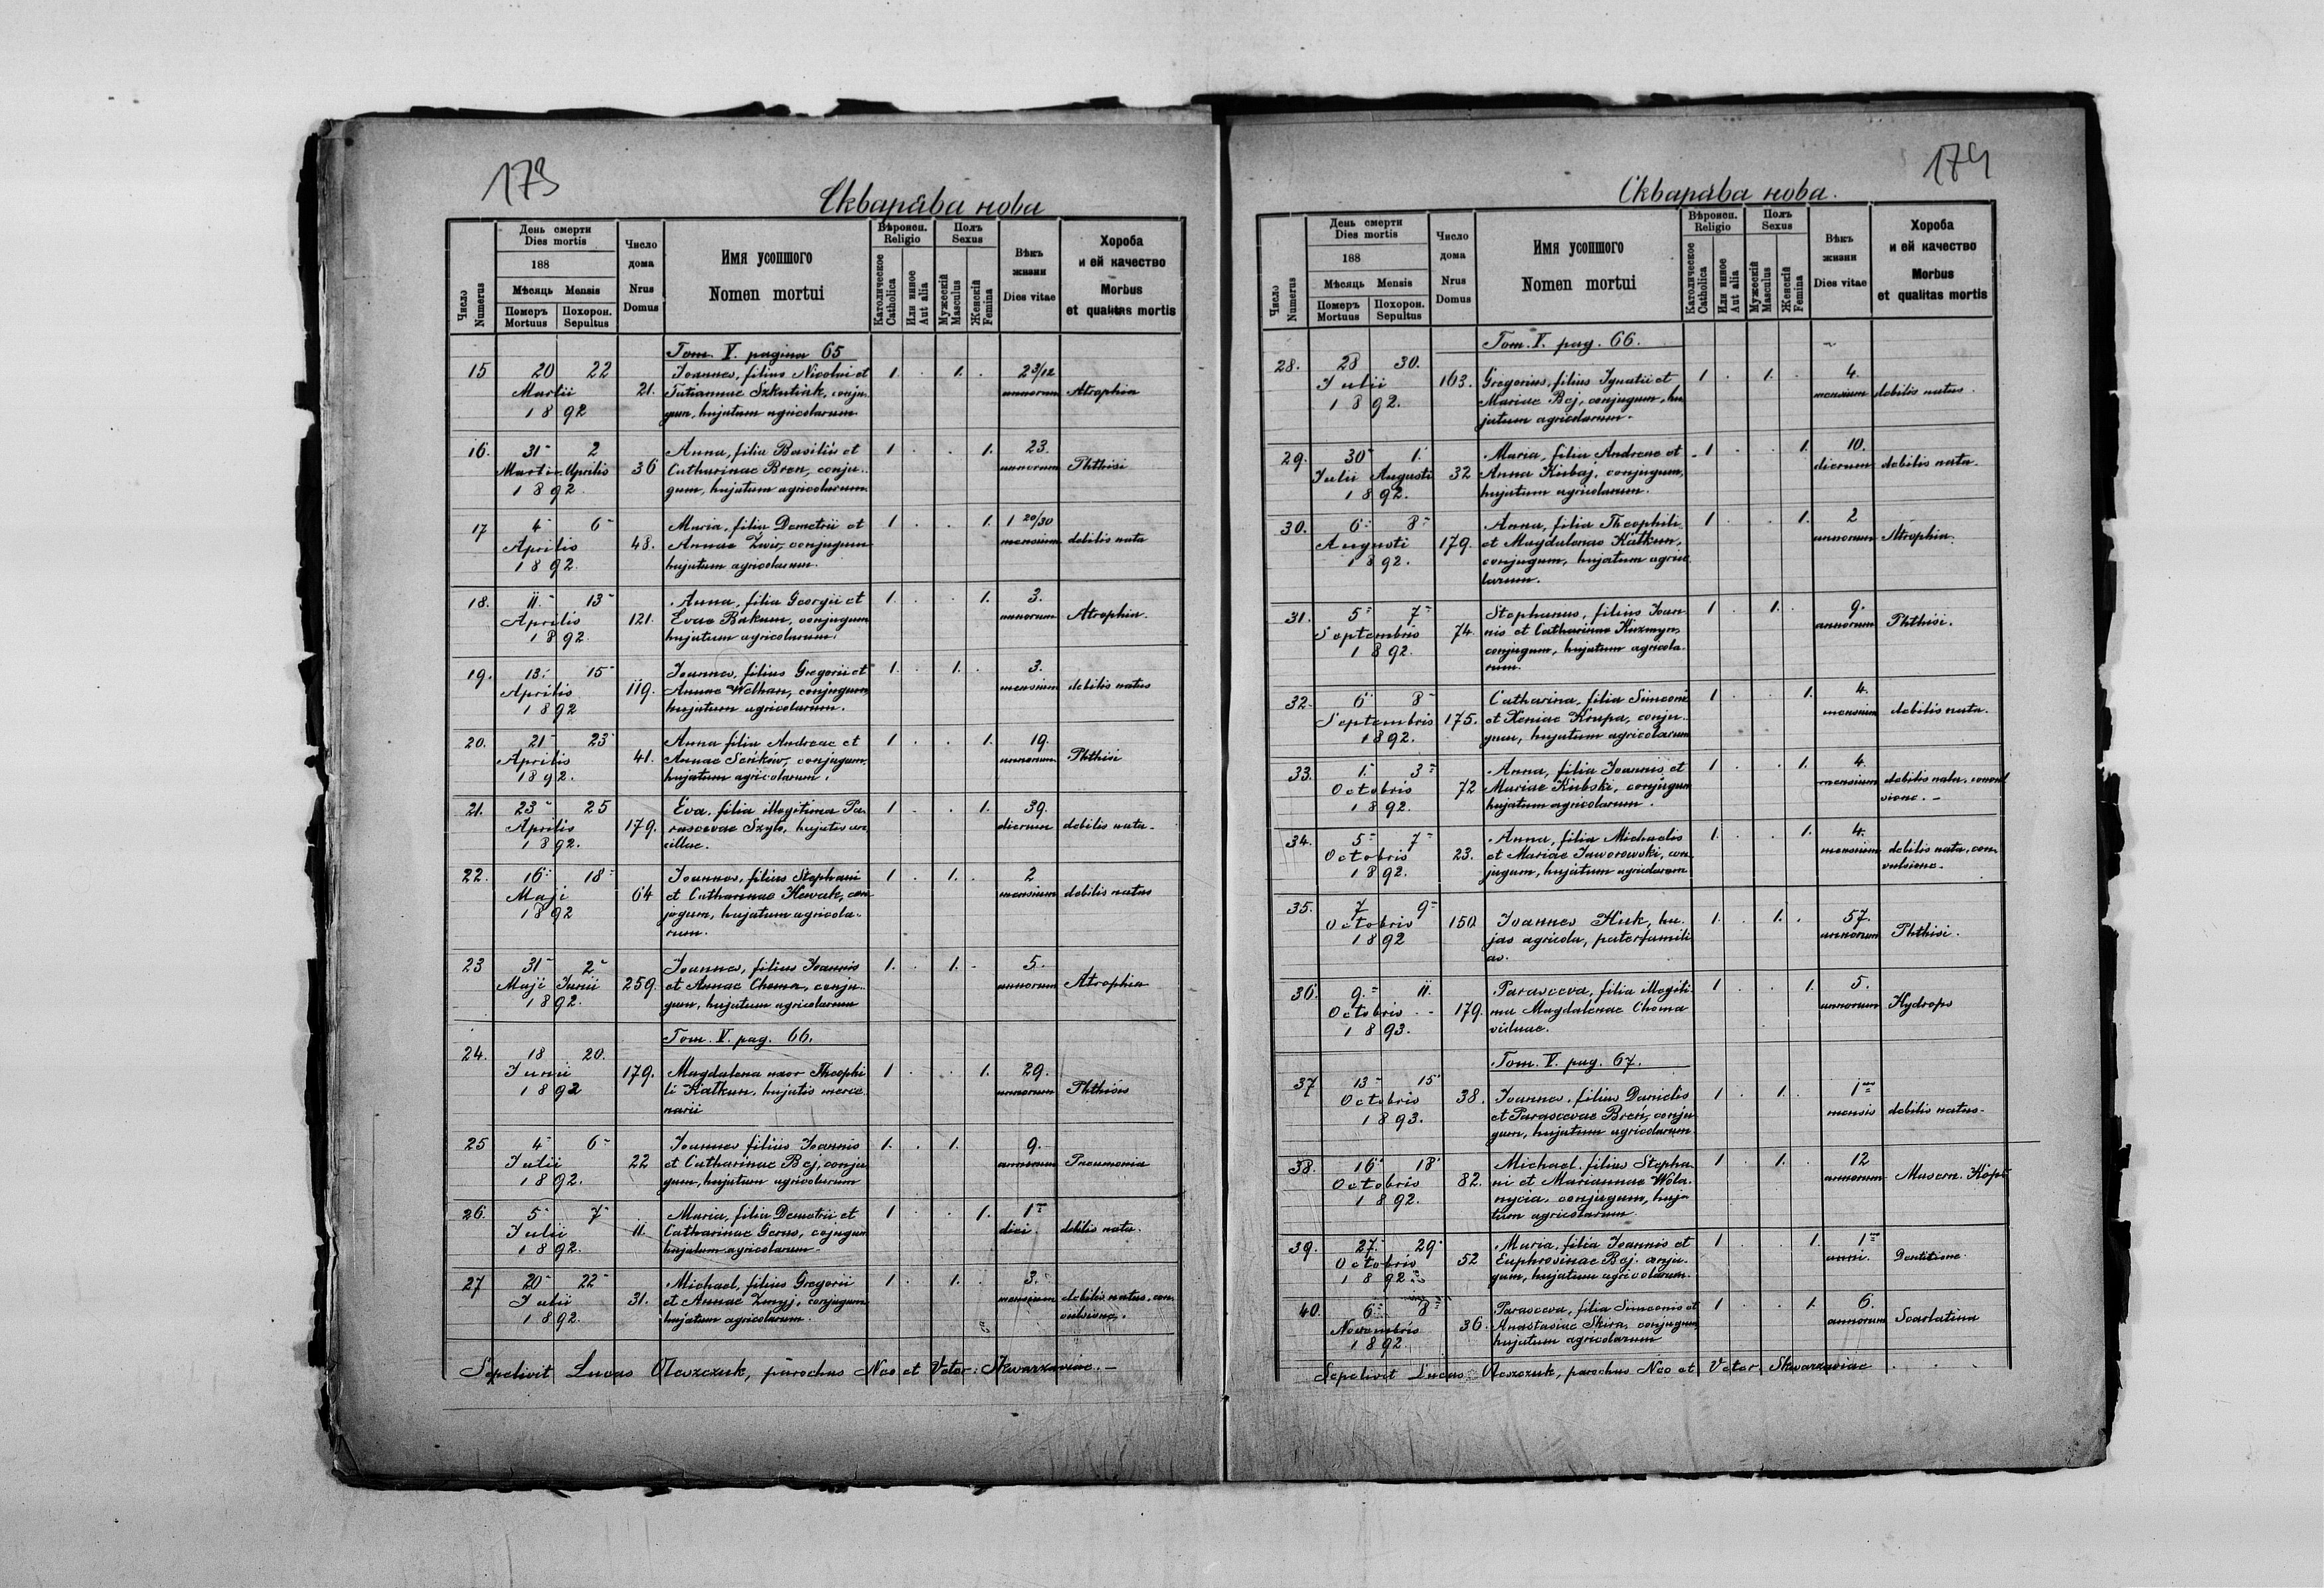 173
Скварѧва нова
День смерти
Dies mortis
188
Мѣсяць Mensis
Число
Numerus
Померъ
Mortuus
Похорон.
Sepultus
Число
дома
Nrus
Domus
Имя усопшого
Nomen mortui
Вѣроисп.
Religio
Католическое
Catholica
Или инное
Aut alia
Полъ
Sexus
Мужескій
Masculus
Женскій
Femina
Вѣкъ
жизни
Dies vitae
Хороба
и ей качество
Morbus
et qualitas mortis
Tom. V. pagina 65
15 20 22 Joannes, filius Nicolai et 1. . 1. . 2 3/12
Martii 21. Tatiannae Szkutink, conju- annorum Atrophia
1892 gum, hujatum agricolarum
16. 31 2 Anna, filia Basilii et 1 . . 1. 23.
Martii Aprilis 36 Catharinae Bren, conju- annorum Phthisi
1892. gum, hujatum agricolarum.
17 4 6 Maria, filia Demetrii et 1 . . 1. 1 20/30
Aprilis 48. Annae Zwir, conjugum mensium debilis nata
1892. hujatum agricolarum.
18. 11. 13 Anna, filia Georgii et 1. . . 1. 3.
Aprilis 121. Evae Bakum, conjugum annorum Atrophia.
1892. hujatum agricolarum.
19. 13. 15 Joannes, filius Gregorii et 1. . 1. . 3.
Aprilis 119. Annae Welhan, conjugum, mensium debilis natus
1892 hujatum agricolarum.
20. 21 23 Anna filia Andreae et 1 . . 1. 19.
Aprilis 41. Annae Seńków, conjugum, annorum Phthisi
1892. hujatum agricolarum.
21. 23 25 Eva, filia illegitima Pa- 1 . . 1. 39.
Aprilis 179. rascevae Szyb, hujatis an- dierum debilis nata.
1892. cillae.
22. 16 18 Joannes, filius Stephani 1 . 1. . 2
Maji 64 et Catharinae Hewak, con- mensium debilis natus
1892 jugum, hujatum agricola-
rum.
23 31 2 Joannes, filius Joannis 1. . 1. . 5.
Maji Junii 259. et Annae Choma, conju- annorum Atrophia
1892. gum, hujatum agricolarum
Tom. V. pag. 66.
24. 18 20. Magdalena uxor Theophi- 1 . . 1. 29.
Junii 179. li Kałkun, hujatis merce- annorum Phthisis
1892 narii
25 4 6 Joannes filius Joannis 1. . 1. 9.
Julii 22 et Catharinae Bej, conju- annorum Pneumonia
1892. gum, hujatum agricolarum
26. 5 7 Maria, filia Demetrii et 1 . . 1. 1
Julii 11. Catharinae Gerus, cojugum diei. debilis nata.
1892. hujatum agricolarum.
27 20 22 Michael, filius Gregorii 1 . 1. . 3.
Julii 31. et Annae Zmyj, conjugum mensium debilis natus, con-
1892. hujatum agricolarum. vulsione.
Sepelivit Lucas Oleszczuk, parochus Neo et Veter. Skwarzaviae.
174
Скварѧва нова.
День смерти
Dies mortis
188
Мѣсяць Mensis
Число
Numerus
Померъ
Mortuus
Похорон.
Sepultus
Число
дома
Nrus
Domus
Имя усопшого
Nomen mortui
Вѣроисп.
Religio
Католическое
Catholica
Или инное
Aut alia
Полъ
Sexus
Мужескій
Masculus
Женскій
Femina
Вѣкъ
жизни
Dies vitae
Хороба
и ей качество
Morbus
et qualitas mortis
Tom. V. pag. 66.
28. 28 30. Gregorius, filius Ignatii et 1 . 1. . 4.
Julii 163. Mariae Bej, conjugum, hu- mensium debilis natus.
1892. jatum agricolarum.
29. 30 1. Maria, filia Andreae et 1 . . 1. 10.
Julii Augusti 32 Anna Kirbaj, conjugum, dierum debilis nata.
1892. hujatum agricolarum.
30. 6 8 Anna, filia Theophili 1 . . 1. 2
Augusti 179. et Magdalenae Kałkun, annorum Atrophia.
1892. conjugum, hujatum agrico-
larum.
31. 5 7 Stephanus, filius Joan- 1 . 1. . 9.
Septembris 74. nis et Catharinae Kuzmyn, annorum Phthisi.
1892. conjugum, hujatum agricola-
rum.
32. 6 8 Catharina, filia Simeonis 1 . . 1. 4.
Septembris 175. et Xeniae Krupa, conju- mensium debilis nata.
1892. gum, hujatum agricolarum
33. 1. 3 Anna, filia Joannis et 1 . . 1. 4.
Octobris 72 Mariae Kubski, conjugum mensium debilis nata, convul-
1892. hujatum agricolarum. sione.
34. 5 7 Anna, filia Michaelis 1. . . 1. 4.
Octobris 23. et Mariae Jaworowski, con- mensium debilis nata, con-
1892. jugum, hujatum agricolarum vulsione.
35. 7 9 Joannes Huk, hu- 1. . 1. . 57.
Octobris 150. jas agricola, paterfamili- annorum Phthisi.
1892 as.
36. 9. 11. Parasceva, filia illegiti- 1 . . 1. 5.
Octobris 179. ma Magdalenae Choma annorum Hydrops
1893. viduae.
Tom. V. pag. 67.
37 13 15 Joannes, filius Danielis 1 . 1. . 1
Octobris 38. et Parascevae Breń, conju- mensis debilis natus.
1893. gum, hujatum agricolarum.
38. 16 18 Michael, filius Stepha- 1 . 1. . 12
Octobris 82. ni et Mariannae Wola- annorum
1892. nycia, conjugum, huja-
tum agricolarum.
39. 27. 29 Maria, filia Joannis et 1 . . 1. 1
Octobris 52 Euphrosinae Bej. conju- anni. Dentitione.
1892. gum, hujatum agricolarum.
40. 6 8 Parasceva, filia Simeonis et 1 . . 1. 6.
Novembris 36. Anastasiae Skira, conjugum, annorum Scarlatina
1892. hujatum agricolarum
Sepelivit Lucas Oleszczuk, parochus Neo et Veter. Skwarzaviae